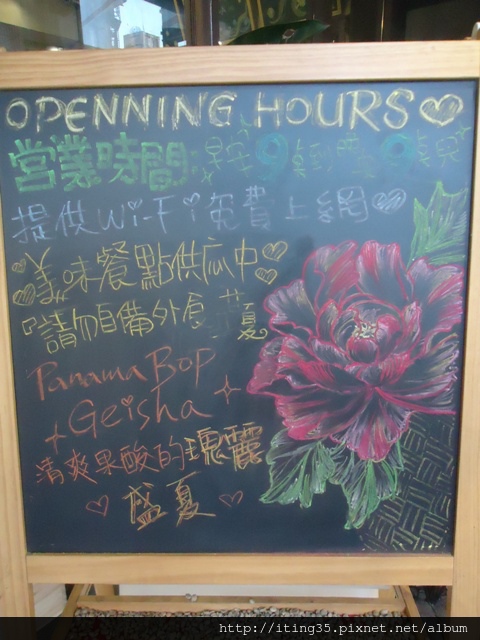 OPENNING HOURS♡
營業時間:早上9點到晚上9點
提供Wi-Fi免費上網♡
美味餐點供應中♡
『請勿自備外食』
Panama BOP
Geisha
清爽果酸的瑰麗
♡盛夏♡
http://iting35.pixnet.net/album